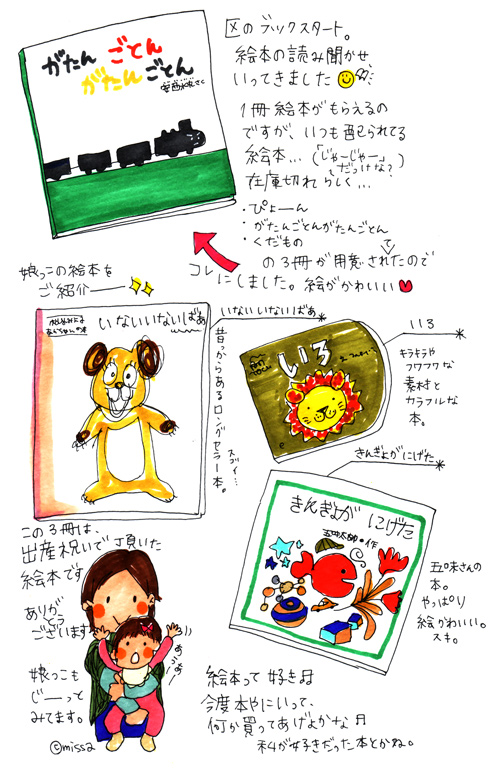 区のブックスタート。
絵本の読み聞かせ、
いってきました
がたん ごとん
がたん ごとん
安西水丸さく
1冊絵本がもらえるの
ですが、いつも配られてる
絵本…(「じゃーじゃー」
だっけな?)
在庫切れらしく…
・ぴょーん
・がたんごとんがたんごとん
・くだもの
の3冊が用意されてたので
コレにしました。絵がかわいい
娘っこの絵本を
ご紹介――
いないいないばあ
いないいないばあ
昔っからあるロングセラー本。
スゴイ…
いろ
いろ
キラキラや
フワフワな
素材と
カラフルな
本。
きんぎょがにげた
きんぎょが にげた
五味太郎・作
五味さんの
本。
やっぱり
絵かわいい。
スキ。
この3冊は、
出産祝いで頂いた
絵本です
ありが
とう
ございます
あうあう
娘っこも
じーっと
みてます。
©missa
絵本って好き
今度本やにいって、
何か買ってあげよかな
私が好きだった本とかね。